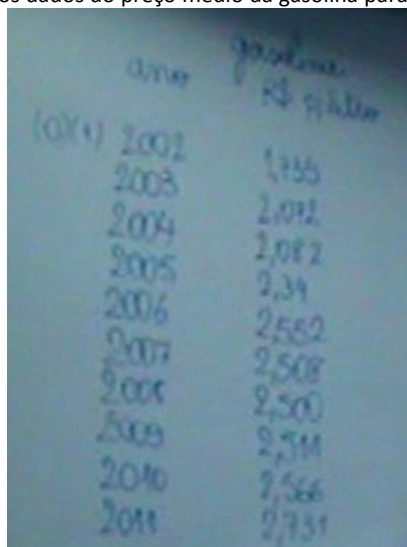 os dados do preço médio da gasolina para
ano gasolina
R$ p/litro
(0)(1) 2002 1,735
2003 2,072
2004 2,082
2005 2,34
2006 2,552
2007 2,508
2008 2,500
2009 2,511
2010 2,566
2011 2,731